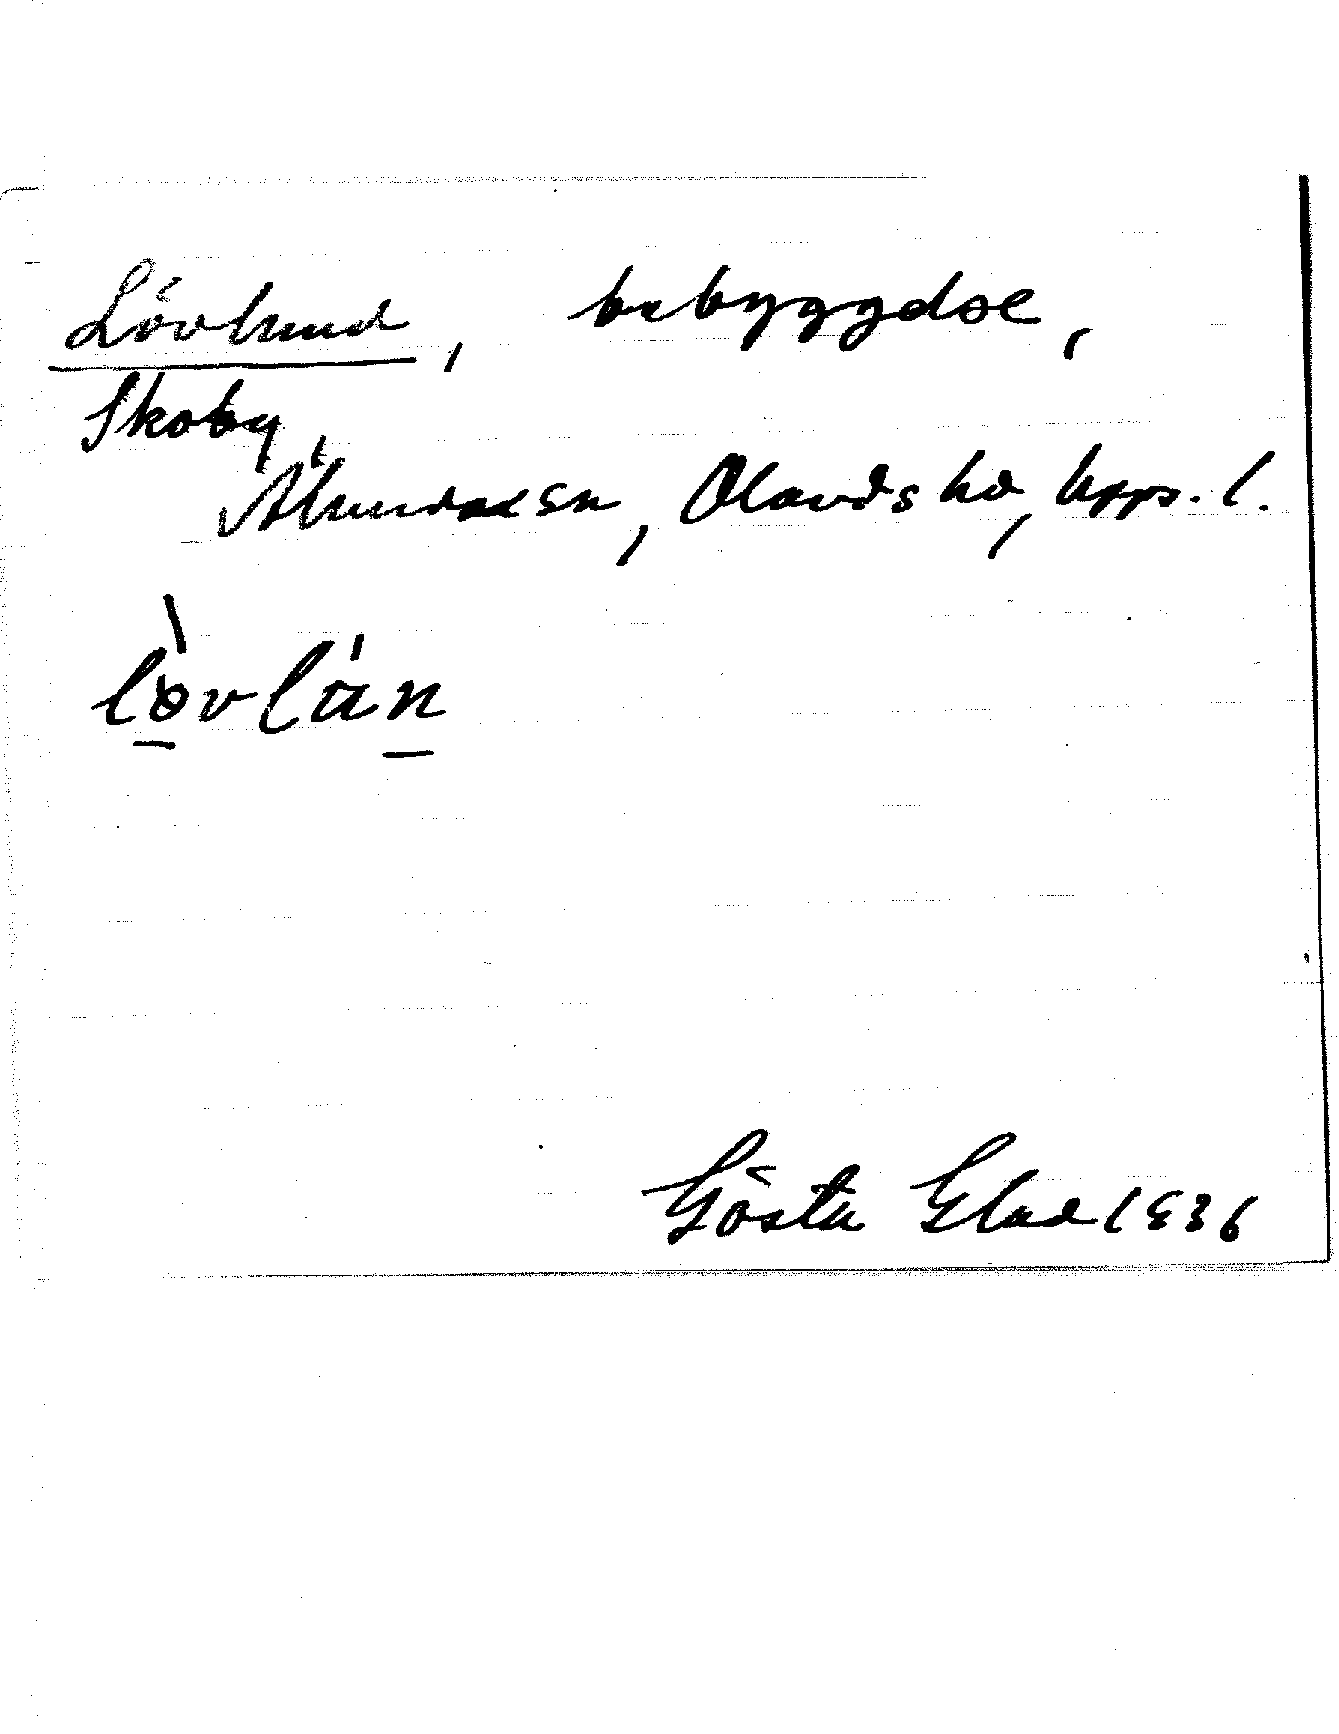 Lövlund, bebyggelse,
Skoby,
Alunda sn, Olands hd, Upps. l.
lòvlán
Gösta Elad 1936